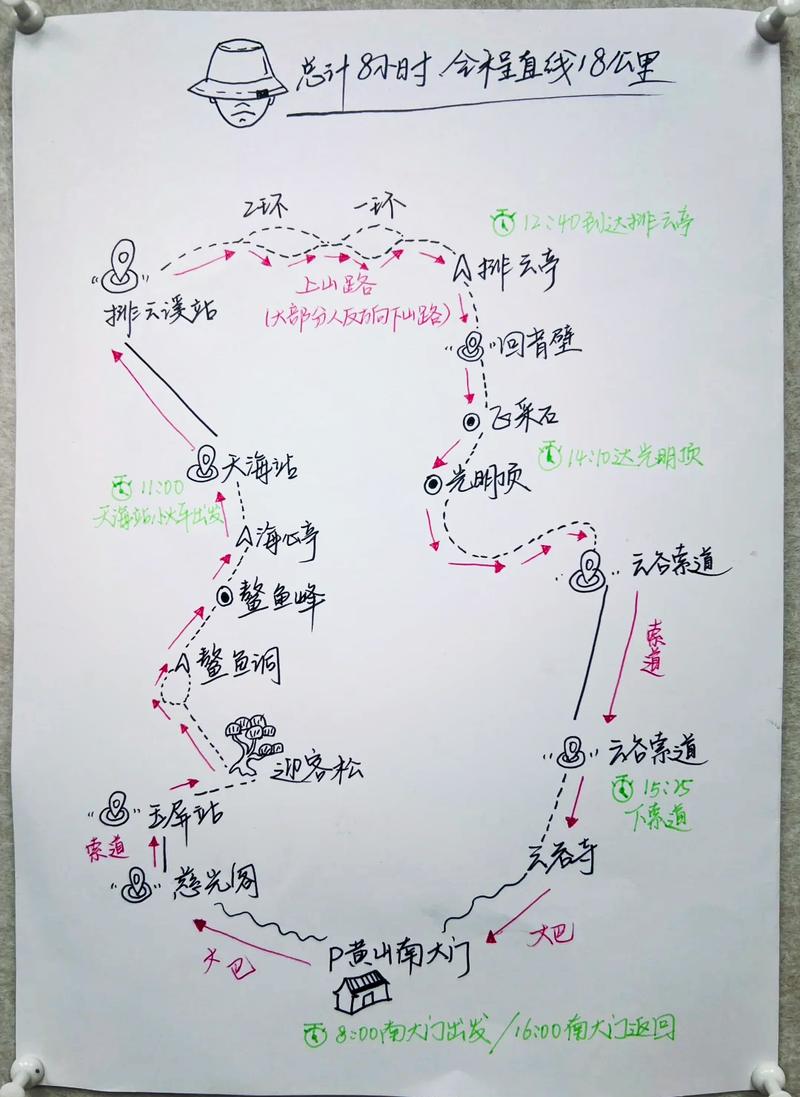 总计8小时、全程直线18公里
2环
一环
12:40到达排云亭
排云亭
排云溪站
上山路
(大部分人反方向下山路)
回音壁
飞来石
14:10达光明顶
光明顶
天海站
11:00
天海站小火车出发
海心亭
云谷索道
鳌鱼峰
索道
鳌鱼洞
迎客松
云谷索道
15:25
下索道
玉屏站
索道
慈光阁
云谷寺
大巴
大巴
P黄山南大门
8:00南大门出发/16:00南大门返回